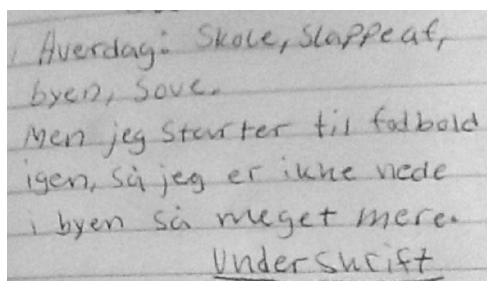 Hverdag: Skole, Slappe af,
byen, Sove.
Men jeg starter til fodbold
igen, så jeg er ikke nede
i byen så meget mere.
Underskrift